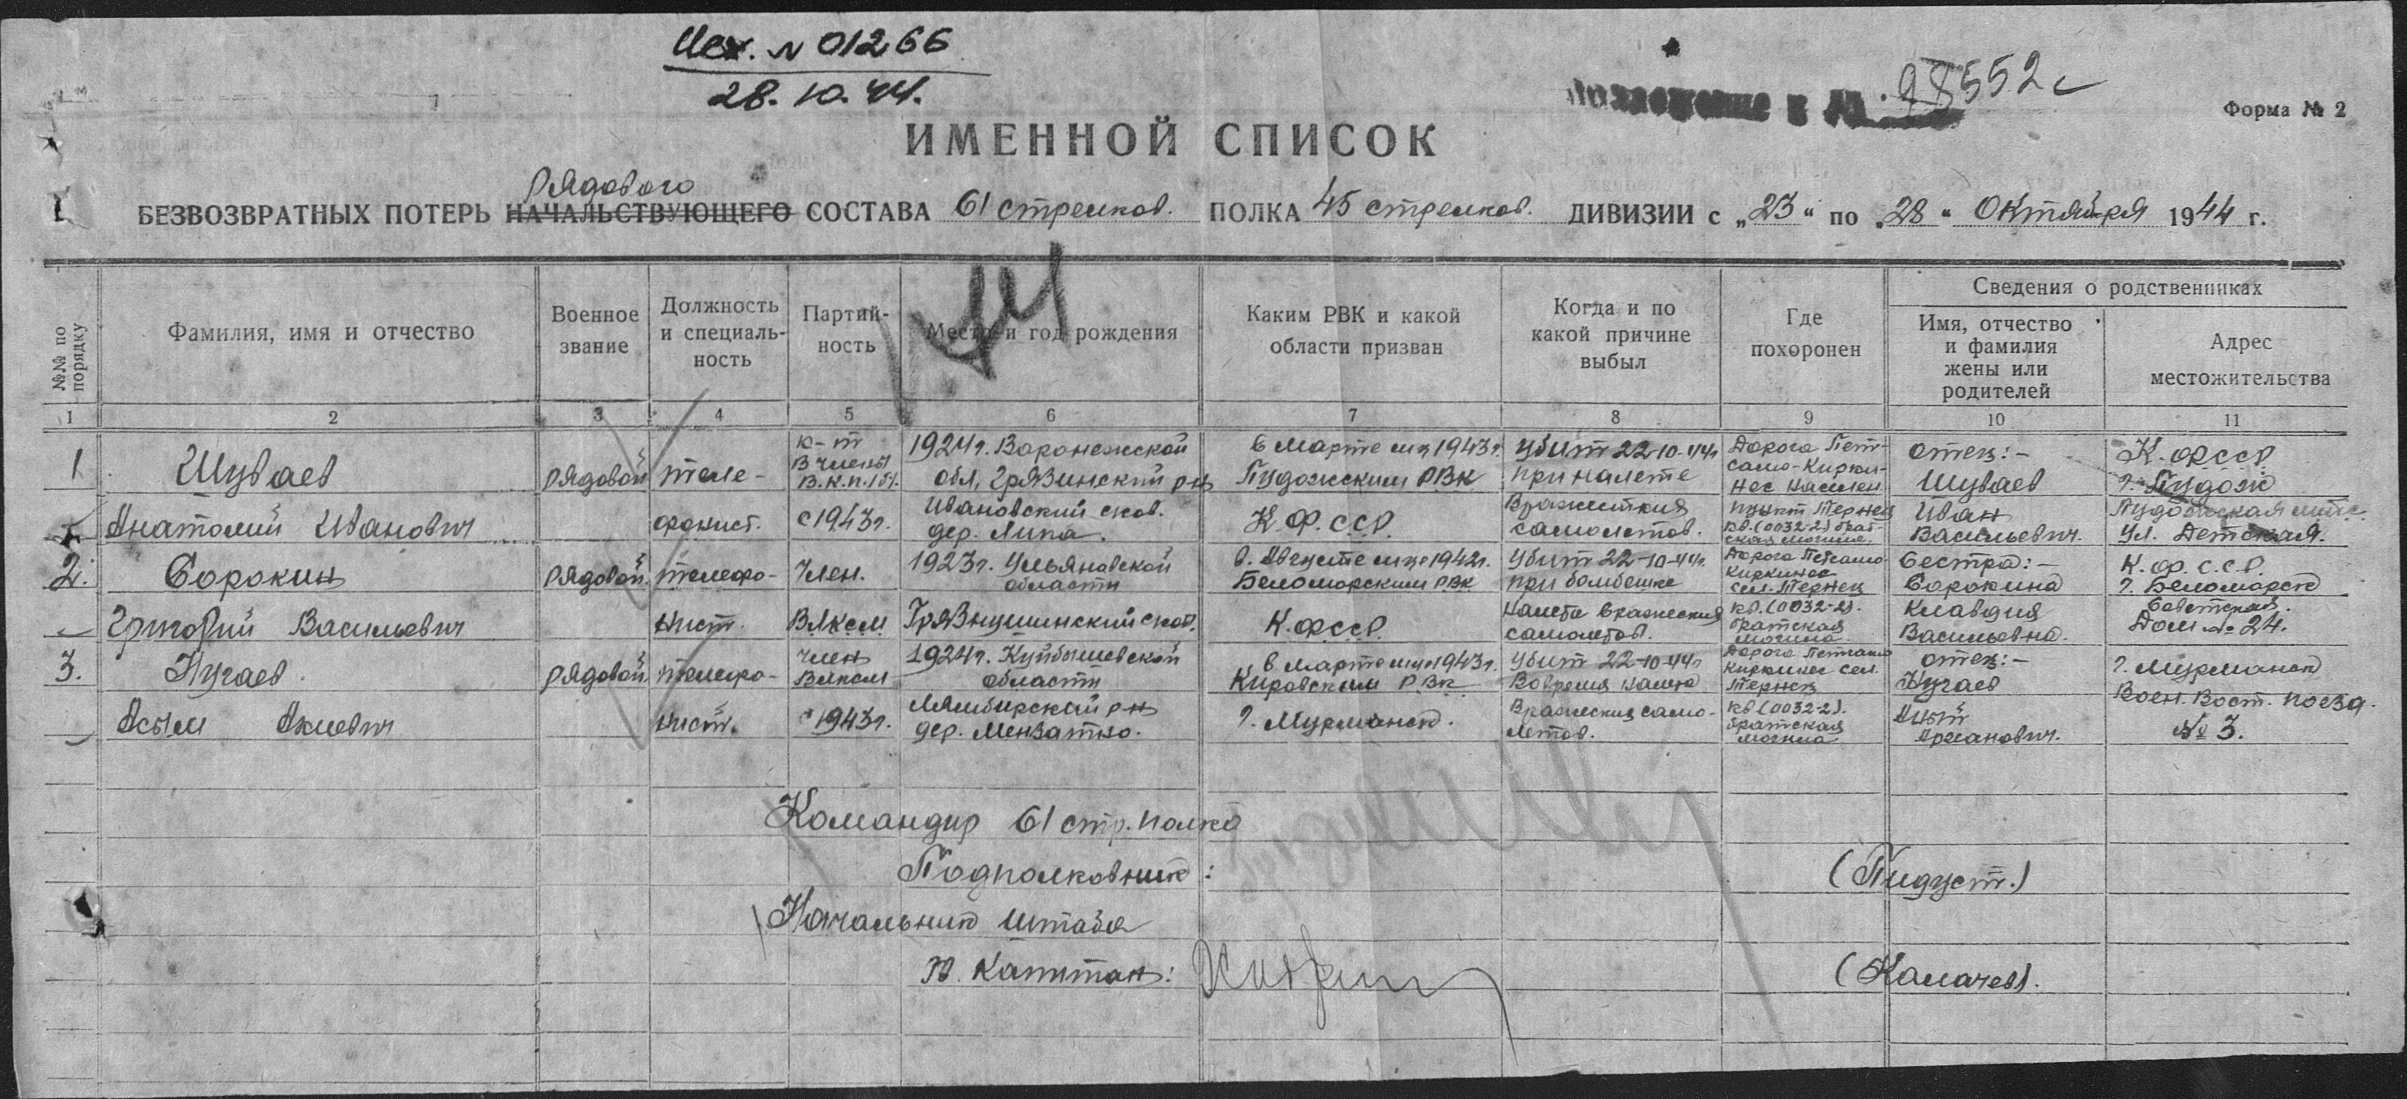 Исх. N 01266
28.10.44.
Приложение к № 98552с
Форма № 2
ИМЕННОЙ СПИСОК
рядового
БЕЗВОЗВРАТНЫХ ПОТЕРЬ НАЧАЛЬСТВУЮЩЕГО СОСТАВА 61 стрелков. ПОЛКА 45 стрелков. ДИВИЗИИ с „23“ по „28“ Октября 1944 г.
№№ по порядку
Фамилия, имя и отчество
Военное
звание
Должность
и специаль-
ность
Партий-
ность
Место и год рождения
Каким РВК и какой
области призван
Когда и по
какой причине
выбыл
Где
похоронен
Сведения о родственниках
Имя, отчество
и фамилия
жены или
родителей
Адрес
местожительства
1 2 3 4 5 6 7 8 9 10 11
1
Шуваев
Анатолий Иванович
рядовой
теле-
фонист.
к-т
В члены
В.К.П./б/.
с 1943г.
1924г. Воронежской
обл, Грязинский р-н
Ивановский сков.
дер. Липа.
в марте м-ц 1943г.
Пудожским РВК
К.Ф.ССР.
Убит 22-10-44г
при налете
Вражеских
самолетов.
Дорога Пет-
само-Кирки-
нес населен
пункт Тернец
кв.(0032-2) брат-
ская могила.
отец:-
Шуваев
Иван
Васильевич.
К.ФССР.
г. Пудож
Ул. Детская.
2.
Сорокин
Григорий Васильевич
рядовой.
телефо-
нист.
Член.
ВЛКСМ
1923г. Ульяновской
области
в. Августе м-це 1942г.
Беломорским РВК
К.ФССР.
Убит 22-10-44г.
при бомбешке
налета вражеских
самолетов.
Дорога Петсамо
Киркинес
сел. Тернец
кв.(0032-2).
братская
могила.
Сестра:-
Сорокина
Клавдия
Васильевна.
К.Ф.С.С.Р.
г. Беломорск
Советская.
Дом № 24.
3.
Нугаев.
Асым Акиевич
рядовой
телефо-
нист.
член
ВЛКСМ
с 1943г.
1924г. Куйбышевской
области
Лямбирский р-н
в марте м-це 1943г.
Кировским РВК
г. Мурманск.
Убит 22-10-44г
Вовремя налета
Вражеских само-
летов.
Дорога Петсамо
Киркинес сел.
Тернец
кв(0032-2).
братская
могила
отец:-
Нугаев
г. Мурманск
Воен. Вост. поезд.
№ 3.
Командир 61 стр. полка
Подполковник:
(Пидуст.)
Начальник штаба
Капитан:
(Калачев).